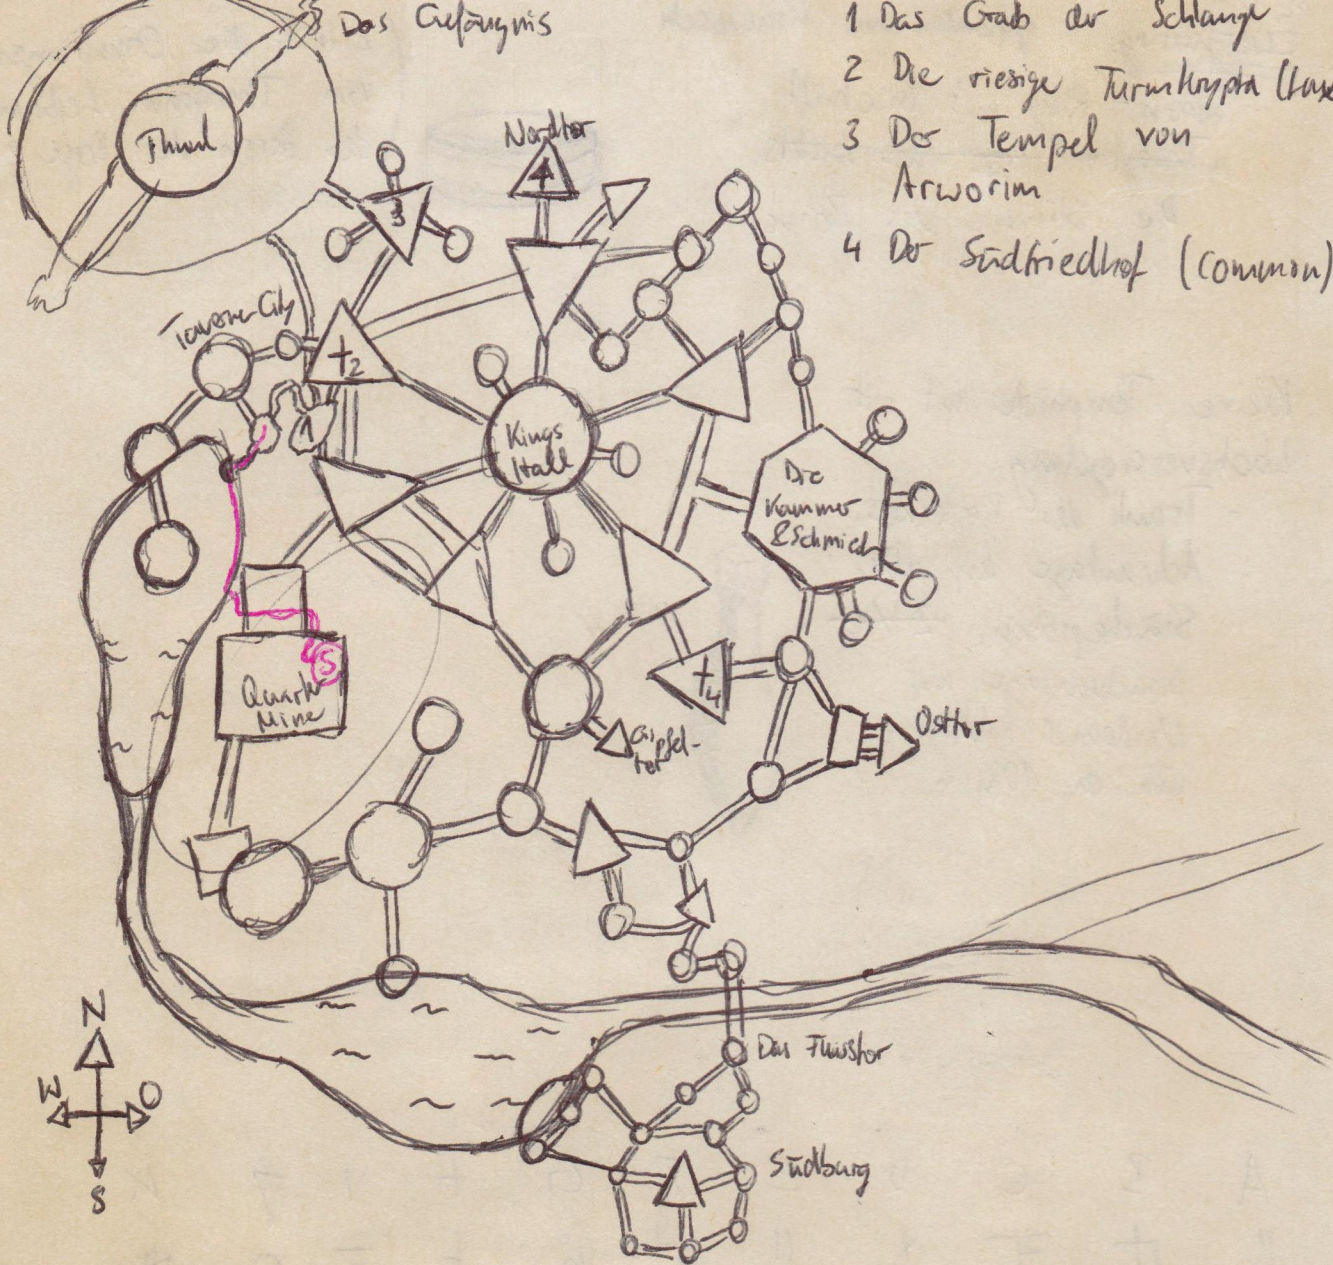 Das Gefängnis
1 Das Grab der Schlange
2 Die riesige Turmkrypta
3 Der Tempel von
Arworim
4 Der Südfriedhof (common)
Nordtor
3
Taverne City
+2
1
Kings
Hall
Die
Kammer
& Schmied
S
Quark
Mine
+4
Gipfel-
tor
Osttor
N
W
O
S
Das Flusstor
Südburg